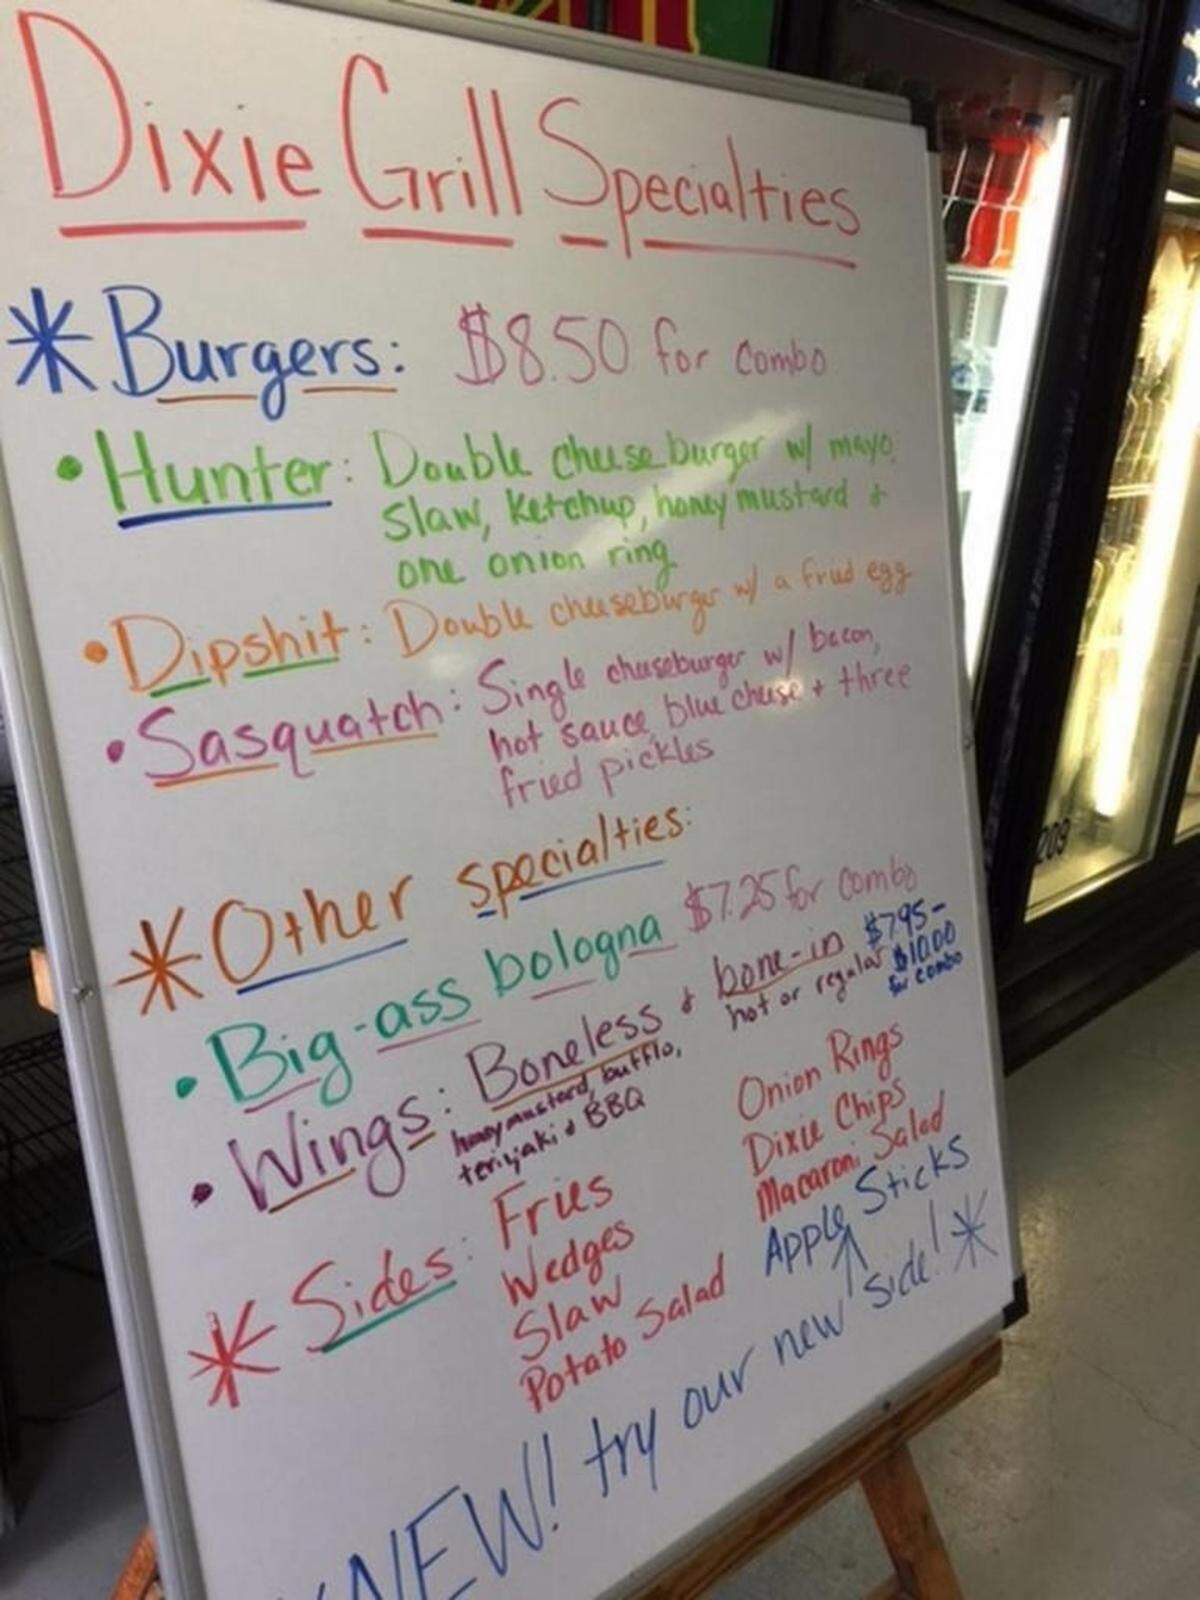 Dixie Grill Specialties
* Burgers: $8.50 for combo
• Hunter: Double cheeseburger w/ mayo,
slaw, ketchup, honey mustard &
one onion ring
• Dipshit: Double cheeseburger w/ a fried egg
• Sasquatch: Single cheeseburger w/ bacon,
hot sauce, blue cheese + three
fried pickles
* Other specialties:
• Big-ass bologna $7.25 for combo
• Wings: Boneless & bone-in $7.95 -
honey mustard, bufflo, hot or regular $10.00
teriyaki & BBQ for combo
* Sides: Fries Onion Rings
Wedges Dixie Chips
Slaw Macaroni Salad
Potato Salad Apple Sticks
NEW! try our new side! *
209